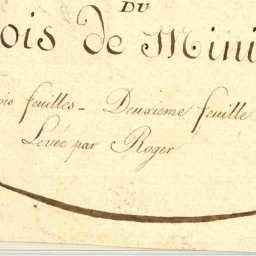 DU
ois de Mini
ois feuilles - Deuxieme feuille
Levée par Roger